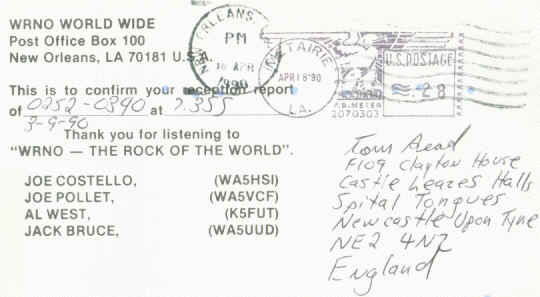 WRNO WORLD WIDE
Post Office Box 100
New Orleans, LA 70181 U.S.
NEW ORLEANS,
PM
APR
1990
METAIRIE
APR 18 '90
LA.
U.S. POSTAGE
28
P.B. METER
2070303
This is to confirm your reception report
of 0252-0390 at 7.355
3-9-90
Thank you for listening to
"WRNO — THE ROCK OF THE WORLD".
JOE COSTELLO, (WA5HSI)
JOE POLLET, (WA5VCF)
AL WEST, (K5FUT)
JACK BRUCE, (WA5UUD)
Tom
F109 Clayton House
Castle Leazes Halls
Spital Tongues
Newcastle Upon Tyne
NE2 4NZ
England